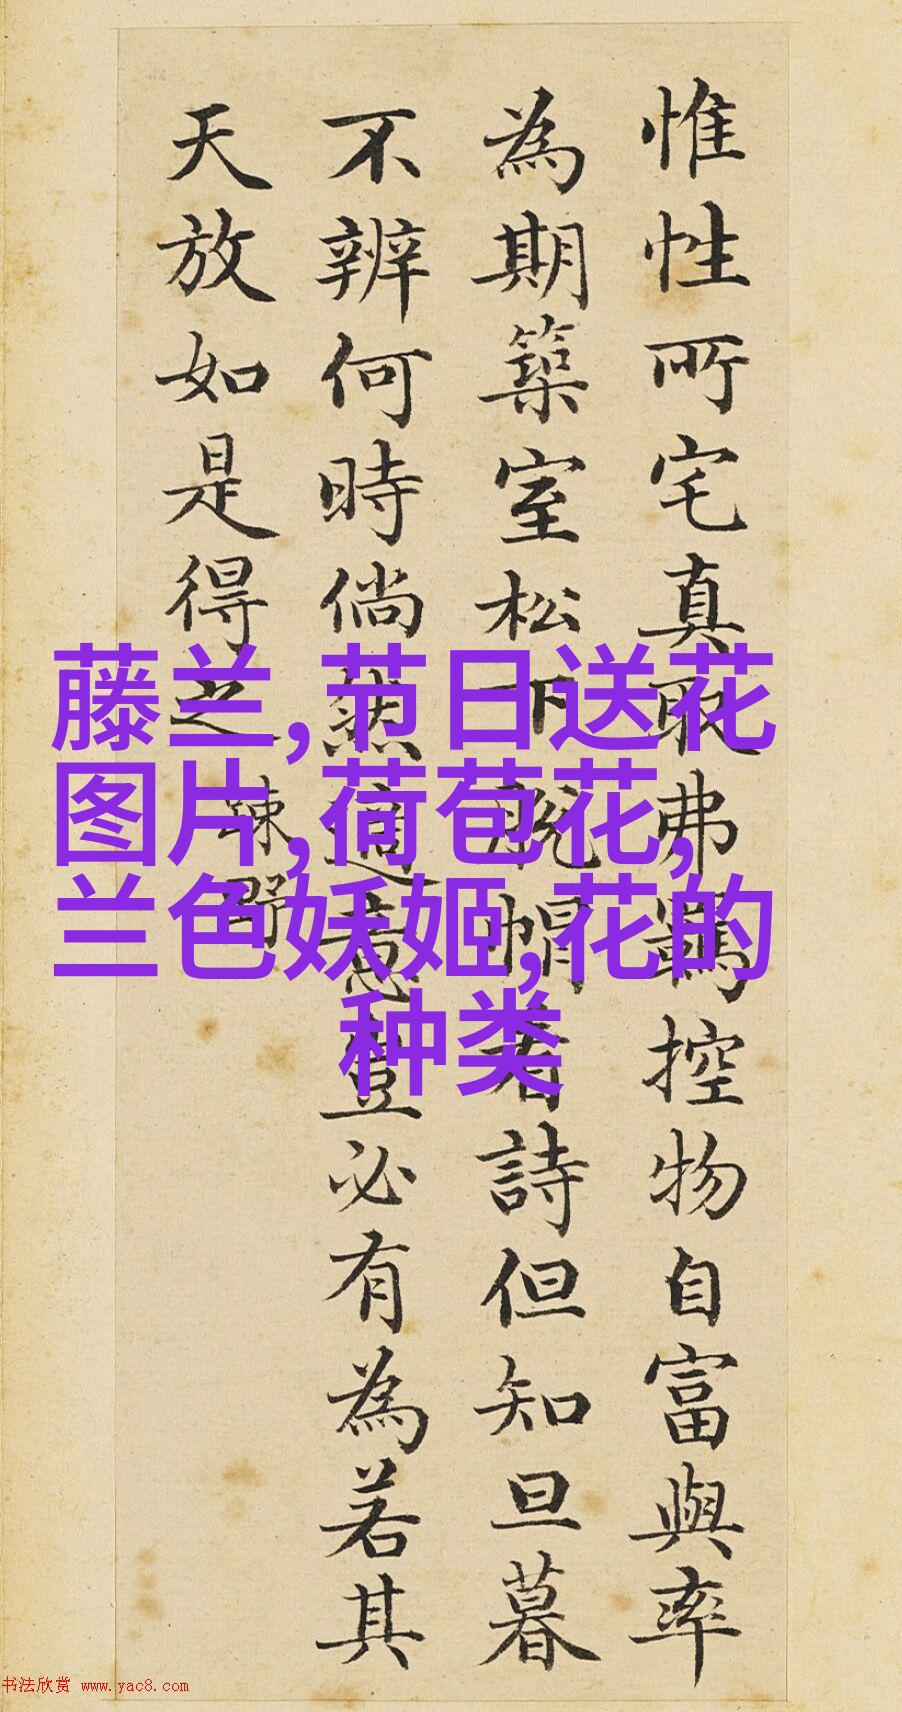 惟性所宅真取弗羈控物自富與率
為期築室松下脫帽看詩但知旦暮
不辨何時倘然適意豈必有為若其
天放如是得之
疎野
藤兰,节日送花
图片,荷苞花,
兰色妖姬,花的
种类
书法欣赏 www.yac8.com